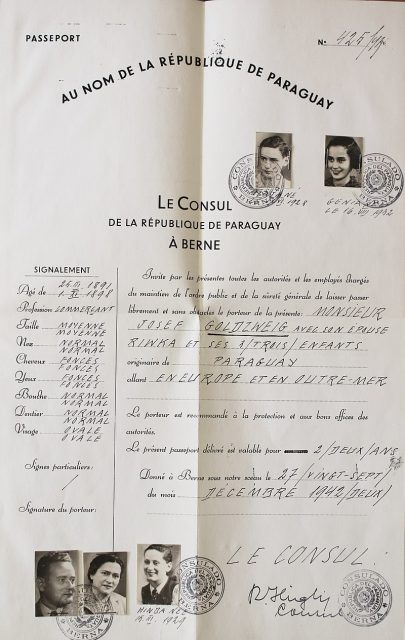 PASSEPORT
No 425/
AU NOM DE LA RÉPUBLIQUE DE PARAGUAY
CONSULADO
BERNA
CONSULADO
BERNA
GENIA
LE CONSUL
DE LA RÉPUBLIQUE DE PARAGUAY
À BERNE
SIGNALEMENT
Âgé de 1891
1898
Profession COMMERÇANT
Taille MOYENNE
MOYENNE
Nez NORMAL
NORMAL
Cheveux FONCÉS
FONCÉS
Yeux FONCÉS
FONCÉS
Bouche NORMAL
NORMAL
Dentier NORMAL
NORMAL
Visage OVALE
OVALE
Signes particuliers:
/
Signature du porteur:
Invite par les présentes toutes les autorités et les employés chargés
du maintien de l'ordre public et de la sûreté générale de laisser passer
librement et sans obstacles le porteur de la présente: MONSIEUR
JOSEF GOLDZWEIG AVEC SON ÉPOUSE
RIWKA ET SES 3/TROIS/ENFANTS
originaire de PARAGUAY
allant EN EUROPE ET EN OUTRE-MER
Le porteur est recommandé à la protection et aux bons offices des
autorités.
Le présent passeport délivré est valable pour 2/DEUX/ANS
Donné à Berne sous notre sceau le 27/VINGT-SEPT/
du mois DÉCEMBRE 1942/DEUX/
LE CONSUL:
CONSULADO
BERNA
CONSULADO
BERNA
CONSULADO
BERNA